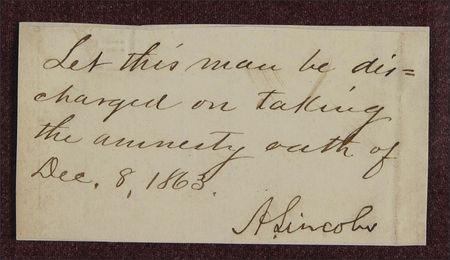 Let this man be dis=
charged on taking
the amnesty oath of
Dec. 8, 1863.
A. Lincoln